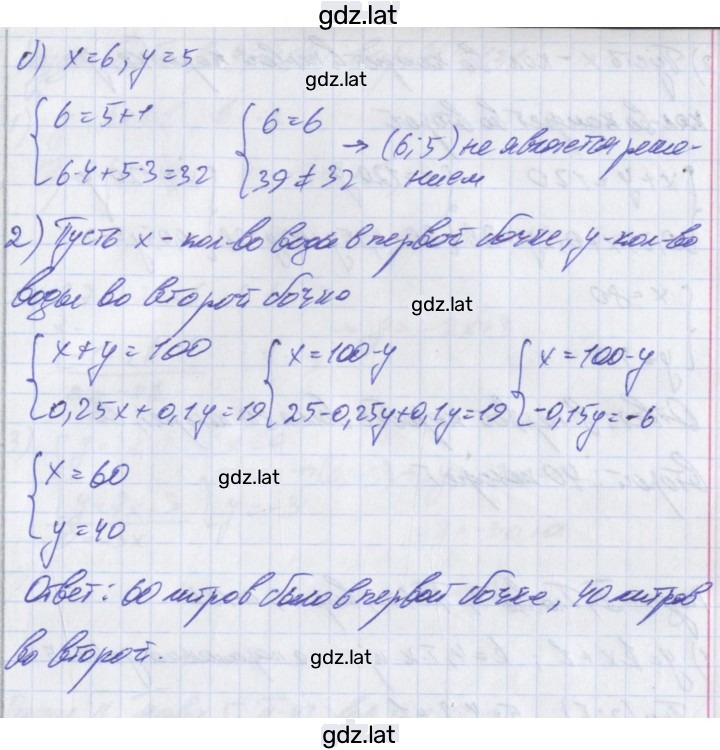 gdz.lat
б) x=6, y=5
gdz.lat
{ 6=5+1 { 6=6
{ 6·4+5·3=32 { 39≠32 → (6;5) не является реше-
нием
2) Пусть x - кол-во воды в первой бочке, y - кол-во
воды во второй бочке
gdz.lat
{ x+y=100 { x=100-y { x=100-y
{ 0,25x+0,1y=19 { 25-0,25y+0,1y=19 { -0,15y=-6
{ x=60
gdz.lat
{ y=40
Ответ: 60 литров было в первой бочке, 40 литров
во второй.
gdz.lat
gdz.lat